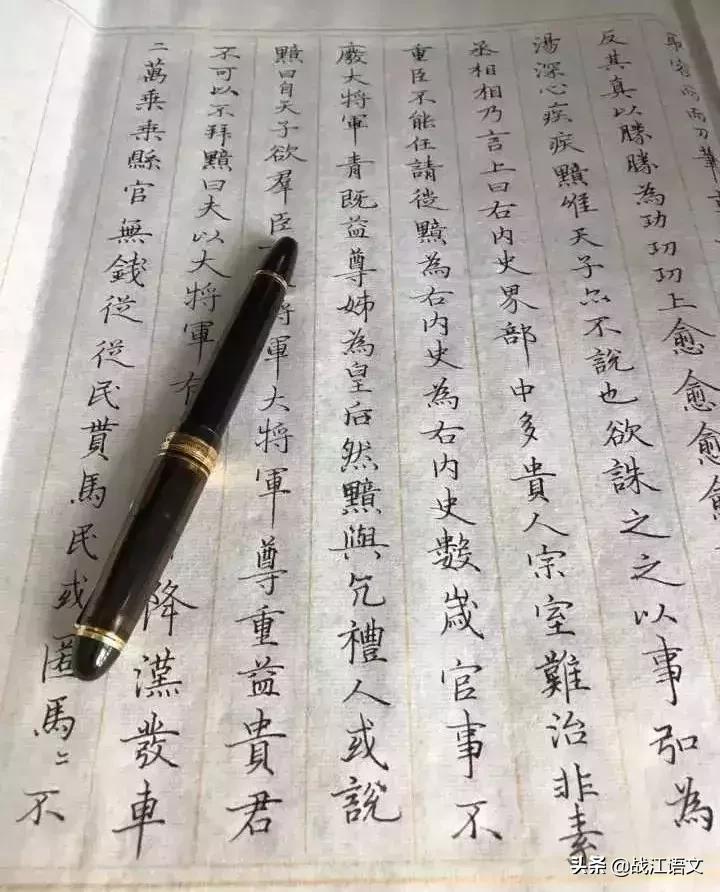 而刀筆
反其真以勝勝為功功功上愈愈愈愈
湯深心疾疾黯唯天子亦不說也欲誅之之以事弘為
丞相相乃言上曰右內史界部中多貴人宗室難治非素
重臣不能任請徙黯為右內史為右內史數歲官事不
廢大將軍青既益尊姊為皇后然黯與亢禮人或說
黯曰自天子欲羣臣將軍大將軍尊重益貴君
不可以不拜黯曰夫以大將軍有降漢發車
二萬乘乘縣官無錢從從民貰馬民或匿馬〻不
头条 @战江语文